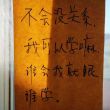 不会没关系,
我可以学嘛.
谁会我就跟
谁学.